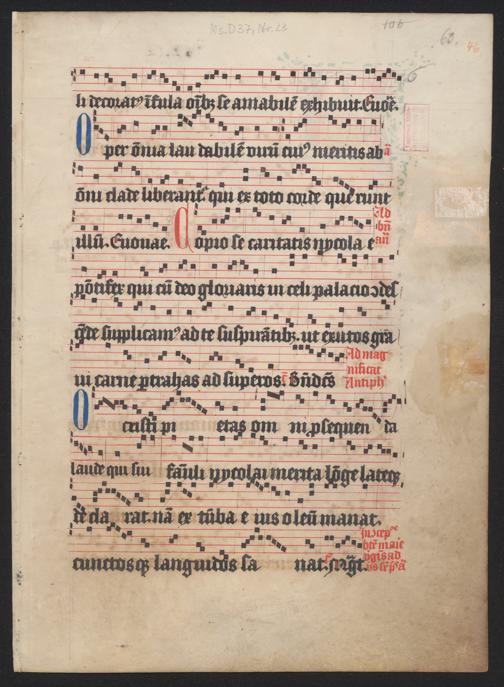 Ms. D 37, Nr. 23
106
63.
46
li decorat⁹ īfula oībꝫ se amabilē exhibuit. Euoē.
O per ōnia lau dabilē virū cui⁹ meritis ab
ōni clade liberant᷑ qui ex toto corde querunt
illū. Euouae.
Ad bn̄ an̄
Copio se caritatis nycola e
pōtifex qui cū deo gloriaris in celi palacio
qde supplicam⁹ ad te suspirātibꝫ. ut exutos gra
ui carne pertrahas ad superos. Bn̄dc̄s
Ad mag
nificat
Antiph
O cristi pi etas om ni psequen da
laude qui sui fauli nycolai merita lōge lateqꝫ
de cla rat. nā ex tūba e ius oleū manat.
cunctosqꝫ languidos sa nat.